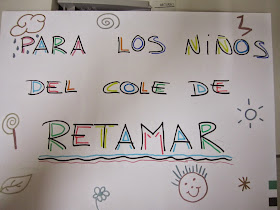 PARA LOS NIÑOS
DEL COLE DE
RETAMAR